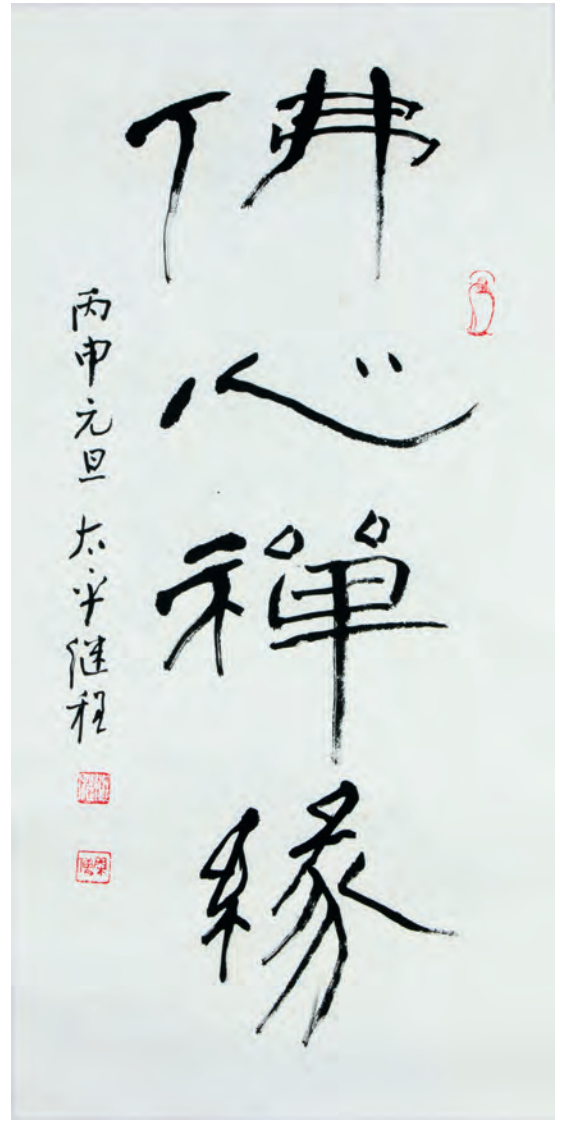 佛心禪緣
丙申元旦 太平继程